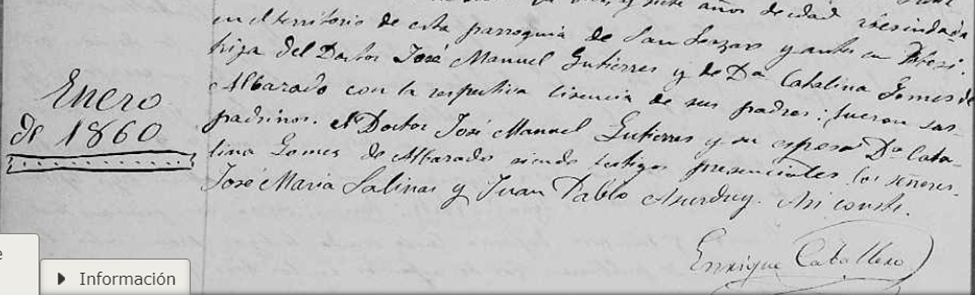 y siete años de edad residenda
en el territorio de esta parroquia de San Lorenzo y antes en Potosí.
hija del Doctor José Manuel Gutierres y de Da Catalina Gomes de
Albarado con la respectiva licencia de sus padres: fueron sus
padrinos. el Doctor José Manuel Gutierres y su esposa Da Cata-
lina Gomes de Albarado siendo testigos presenciales los señores.
José María Salinas y Juan Pablo Asurduy. Asi conste.
Enrique Caballero
Enero
de 1860
Información